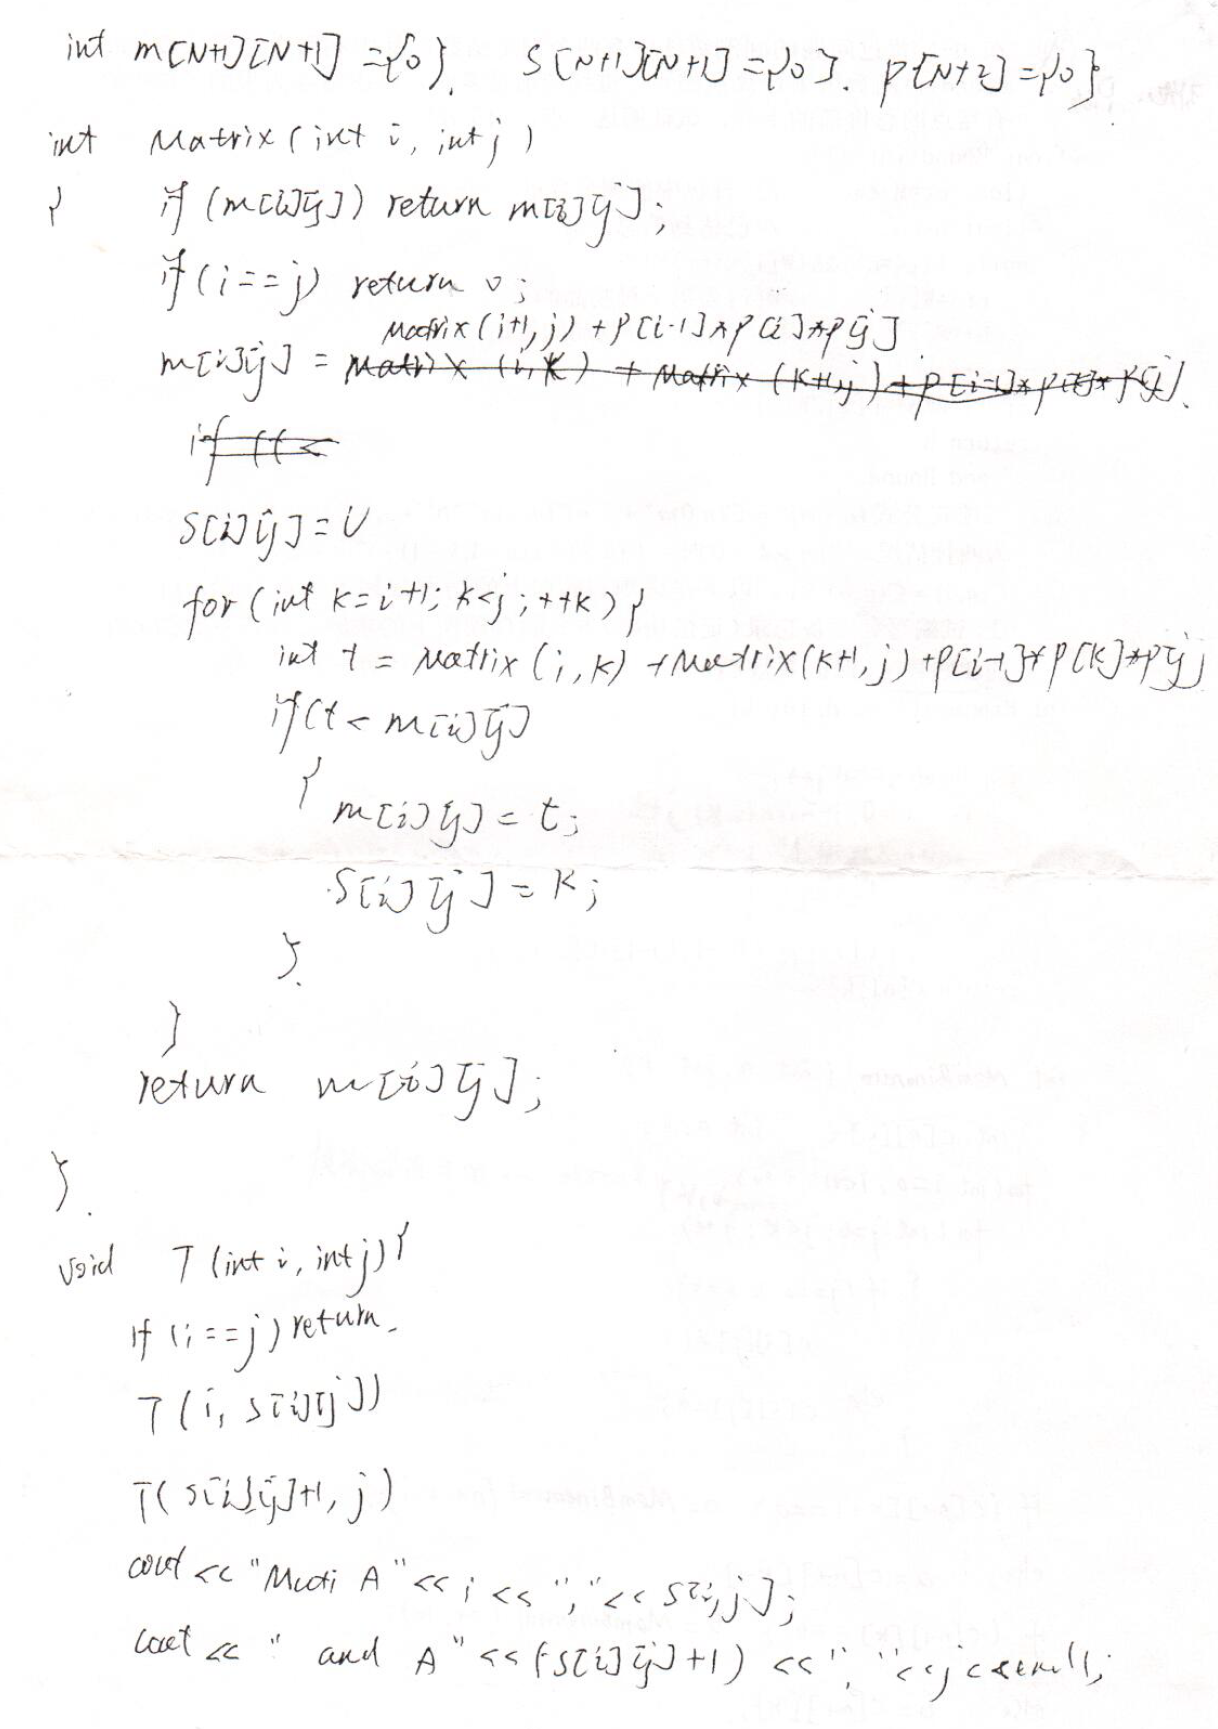 int m[N+1][N+1] = {0}, S[N+1][N+1] = {0}, p[N+2] = {0}
int Matrix (int i, int j)
{ if (m[i][j]) return m[i][j];
if (i==j) return 0;
Matrix(i+1, j) + p[i-1]*p[i]*p[j]
m[i][j] = Matrix (i, k) + Matrix (k+1, j) + p[i-1]*p[k]*p[j].
if ((<
S[i][j] = i
for (int k=i+1; k<j; ++k) {
int t = Matrix (i, k) + Matrix(k+1, j) + p[i-1]*p[k]*p[j
if(t < m[i][j]
{ m[i][j] = t;
S[i][j] = k;
}.
}
return m[i][j];
}.
void T (int i, int j) {
if (i==j) return
T (i, s[i][j])
T( s[i][j]+1, j)
cout << "Muti A" << i << "," << s[i,j];
cout << " and A" << (s[i][j]+1) << "," << j << endl;